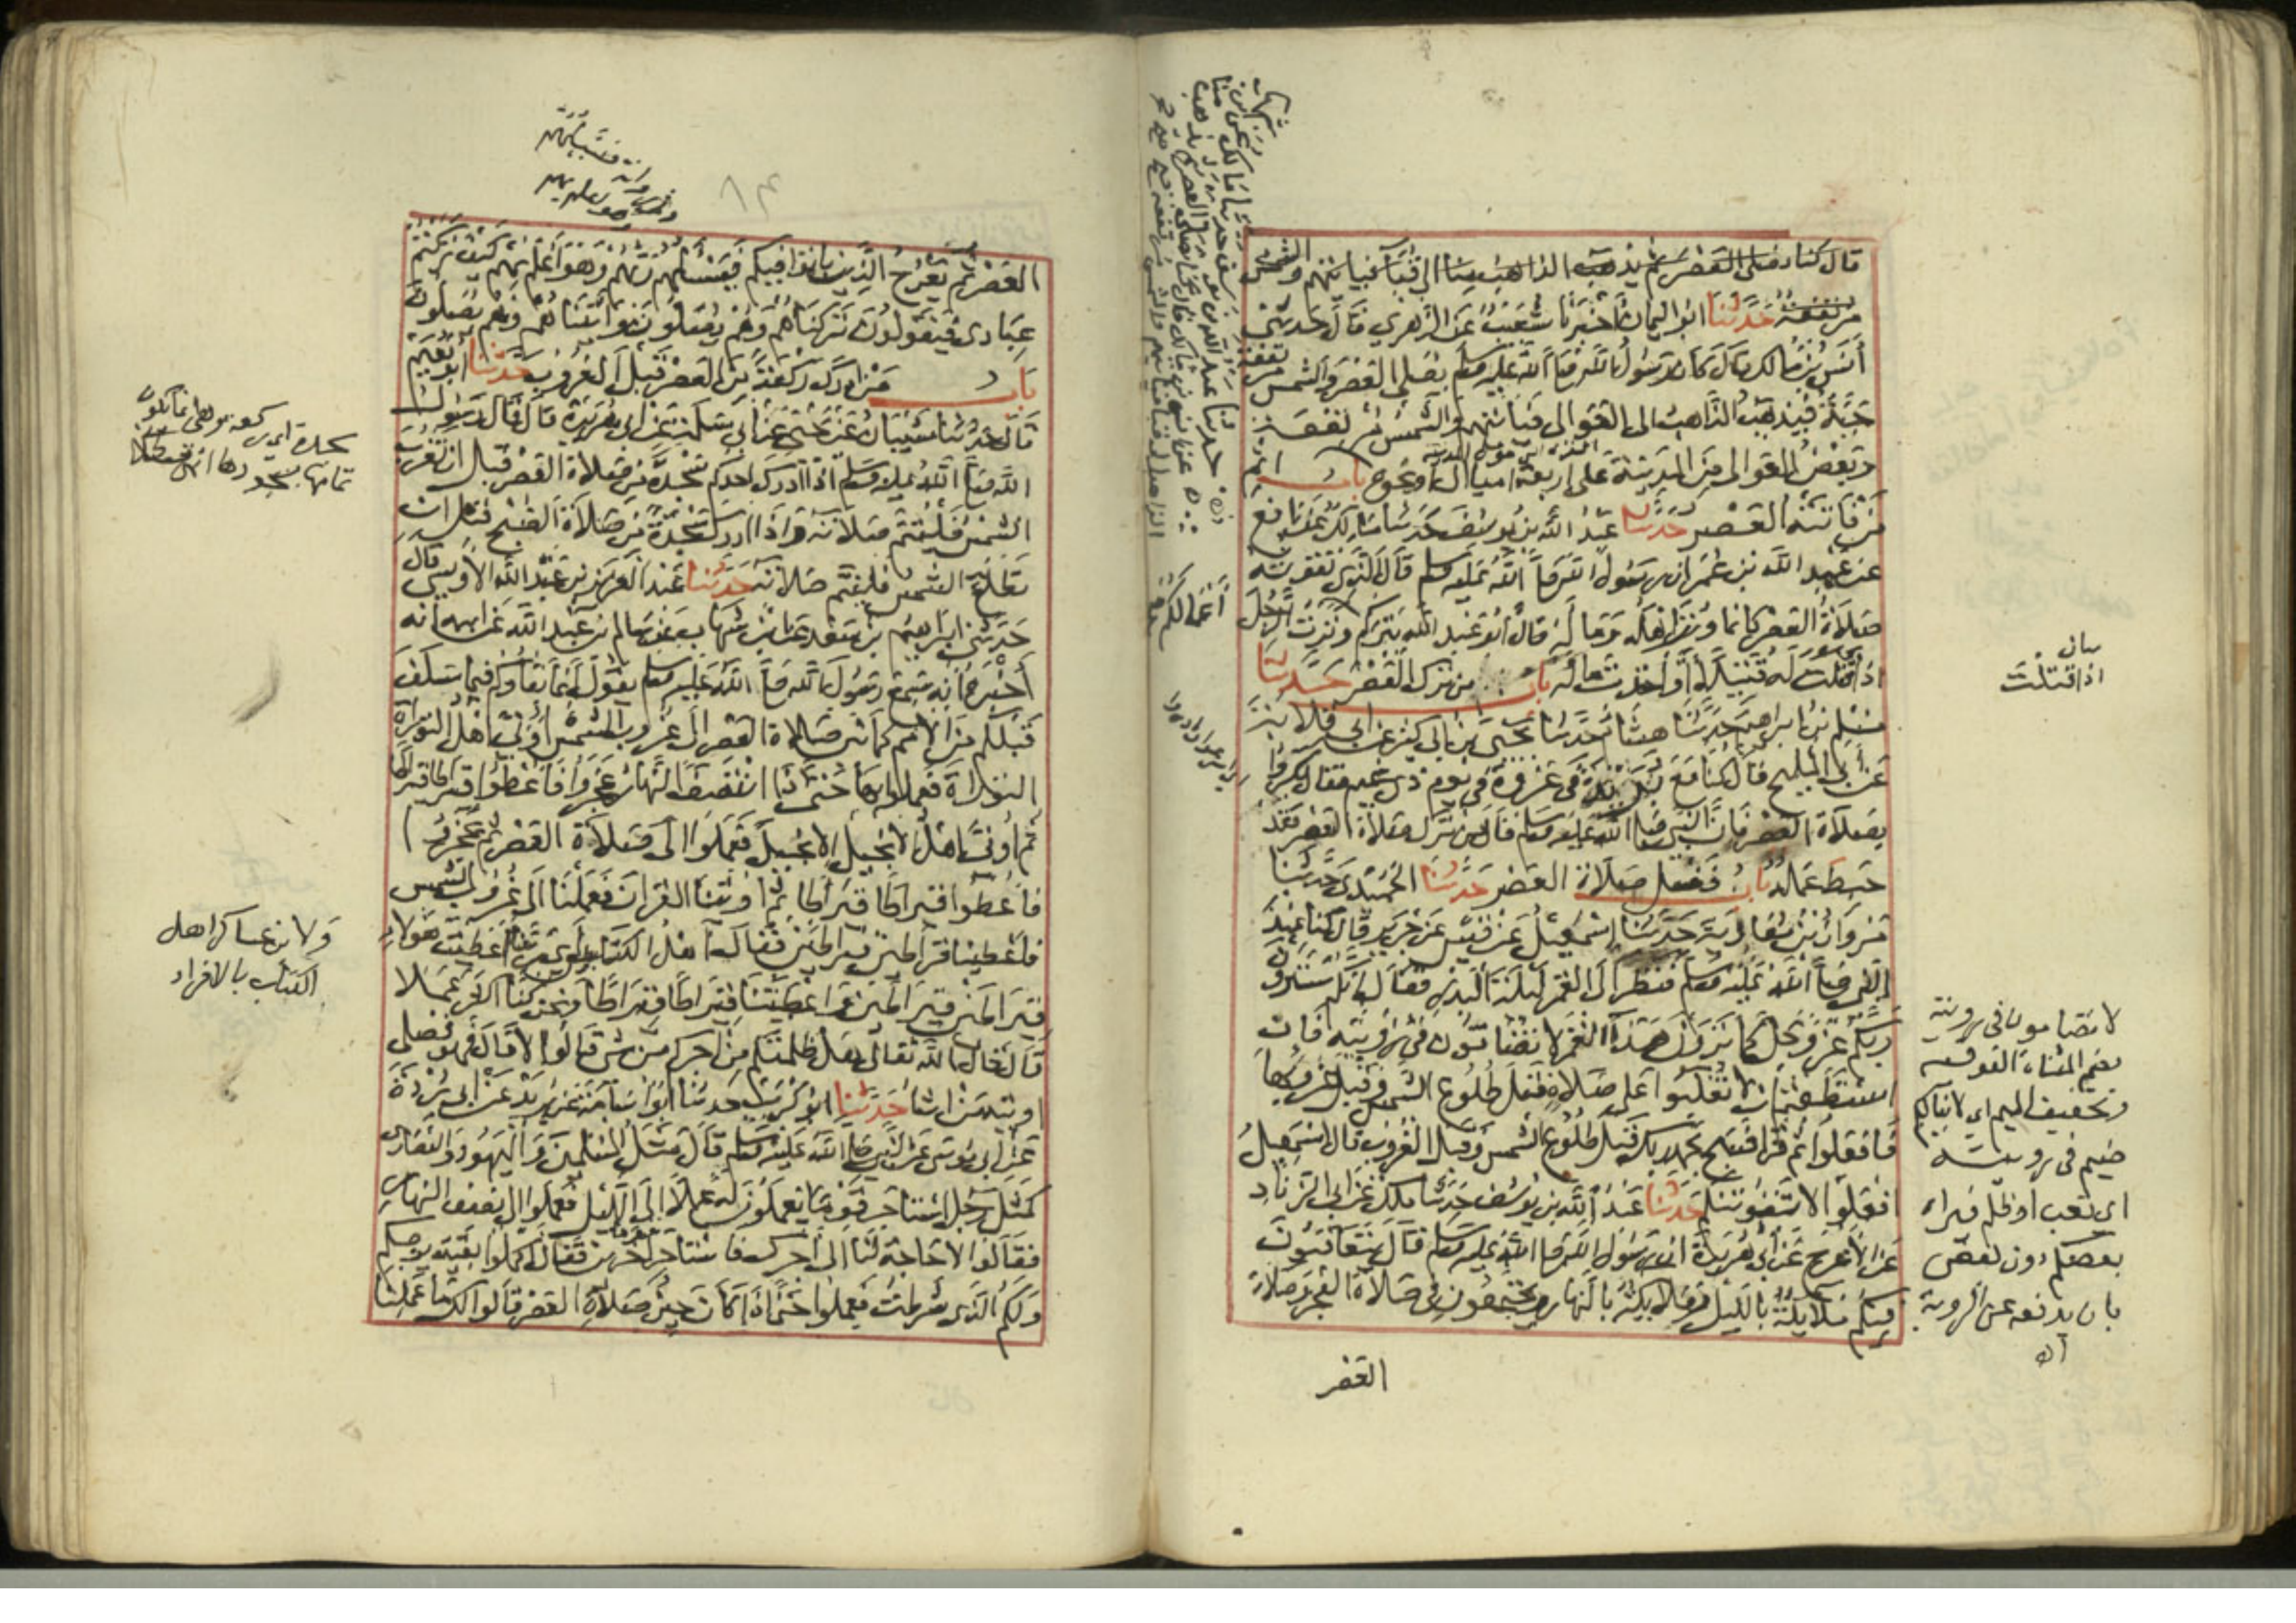 قال كنا نصلى العصر ثم يذهب الذاهب منا الى قباء فياتيهم والشمس
مرتفعة حدثنا ابو اليمان اخبرنا شعيب عن الزهري قال حدثني
أنس بن مالك قال كان رسول الله صلى الله عليه وسلم يصلى العصر والشمس مرتفعة
حية فيذهب الذاهب الى العوالى فياتيهم والشمس مرتفعة
وبعض العوالى من المدينة على اربعة اميال او نحوه باب اثم
من فاتته العصر حدثنا عبد الله بن يوسف حدثنا مالك عن نافع
عن عبد الله بن عمر ان رسول الله صلى الله عليه وسلم قال الذي تفوته
صلاة العصر كانما وتر اهله وماله قال ابو عبد الله يتركم وترت الرجل
اذا قتلت له قتيلا أو أخذت ماله باب من ترك العصر حدثنا
مسلم بن ابراهيم حدثنا هشام حدثنا يحيى بن ابي كثير عن ابي قلابة
عن أبي المليح قال كنا مع بريدة في غزوة في يوم ذي غيم فقال بكروا
بصلاة العصر فان النبي صلى الله عليه وسلم قال من ترك صلاة العصر فقد
حبط عمله باب فضل صلاة العصر حدثنا الحميدي حدثنا
مروان بن معاوية حدثنا اسمعيل عن قيس عن جرير قال كنا عند
النبي صلى الله عليه وسلم فنظر الى القمر ليلة البدر فقال انكم سترون
ربكم عز وجل كما ترون هذا القمر لا تضامون في رؤيته فان
استطعتم ان لا تغلبوا على صلاة قبل طلوع الشمس وقبل غروبها
فافعلوا ثم قرأ فسبح بحمد ربك قبل طلوع الشمس وقبل الغروب قال اسمعيل
افعلوا لا تفوتنكم حدثنا عبد الله بن يوسف حدثنا ملك عن ابي الزناد
عن الاعرج عن أبي هريرة ان رسول الله صلى الله عليه وسلم قال يتعاقبون
فيكم ملايكة بالليل وملايكة بالنهار ويجتمعون في صلاة الفجر وصلاة
العصر
اذا قتلت
لا تضامون في رويته
بضم المثناة الفوقية
وتخفيف الميم اي لا ينالكم
ضيم في رويته
اي تعب او ظلم فيراه
بعضكم دون بعض
بان يدفعه عن الروية
اه
العصر ثم يعرج الذين باتوا فيكم فيسألهم ربهم وهو أعلم بهم كيف تركتم
عبادى فيقولون تركناهم وهم يصلون واتيناهم وهم يصلون
باب من ادرك ركعة من العصر قبل الغروب حدثنا ابو نعيم
قال حدثنا شيبان عن يحيى عن أبي سلمة عن ابي هريرة قال قال رسول
الله صلى الله عليه وسلم اذا ادرك احدكم سجدة من صلاة العصر قبل ان تغرب
الشمس فليتم صلاته واذا ادرك سجدة من صلاة الصبح قبل ان
تطلع الشمس فليتم صلاته حدثنا عبد العزيز بن عبد الله الأويسي قال
حدثني ابراهيم بن سعد عن ابن شهاب عن سالم بن عبد الله عن ابيه أنه
أخبره أنه سمع رسول الله صلى الله عليه وسلم يقول انما بقاؤكم فيما سلف
قبلكم من الأمم كما بين صلاة العصر الى غروب الشمس أوتي اهل التوراة
التوراة فعملوا بها حتى اذا انتصف النهار عجزوا فأعطوا قيراطا قيراطا
ثم أوتى اهل الانجيل الانجيل فعملوا الى صلاة العصر ثم عجزوا
فأعطوا قيراطا قيراطا ثم أوتينا القرآن فعملنا الى غروب الشمس
فأعطينا قيراطين قيراطين فقال اهل الكتاب أي ربنا أعطيت هؤلاء
قيراطين قيراطين وأعطيتنا قيراطا قيراطا ونحن كنا اكثر عملا
قال قال الله تعالى هل ظلمتكم من اجركم من شئ قالوا لا قال فهو فضلى
اوتيه من اشا حدثنا ابو كريب حدثنا ابو اسامة عن بريد عن ابي بردة
عن ابى موسى عن النبي صلى الله عليه وسلم قال مثل المسلمين واليهود والنصارى
كمثل رجل استاجر قوما يعملون له عملا إلى الليل فعملوا الى نصف النهار
فقالوا لا حاجة لنا الى أجرك فاستاجر آخرين فقال اكملوا بقية يومكم
ولكم الذى شرطت فعملوا حتى اذا كان حين صلاة العصر قالوا لك ما عملنا
ولابن عساكر اهل
الكتاب بالافراد